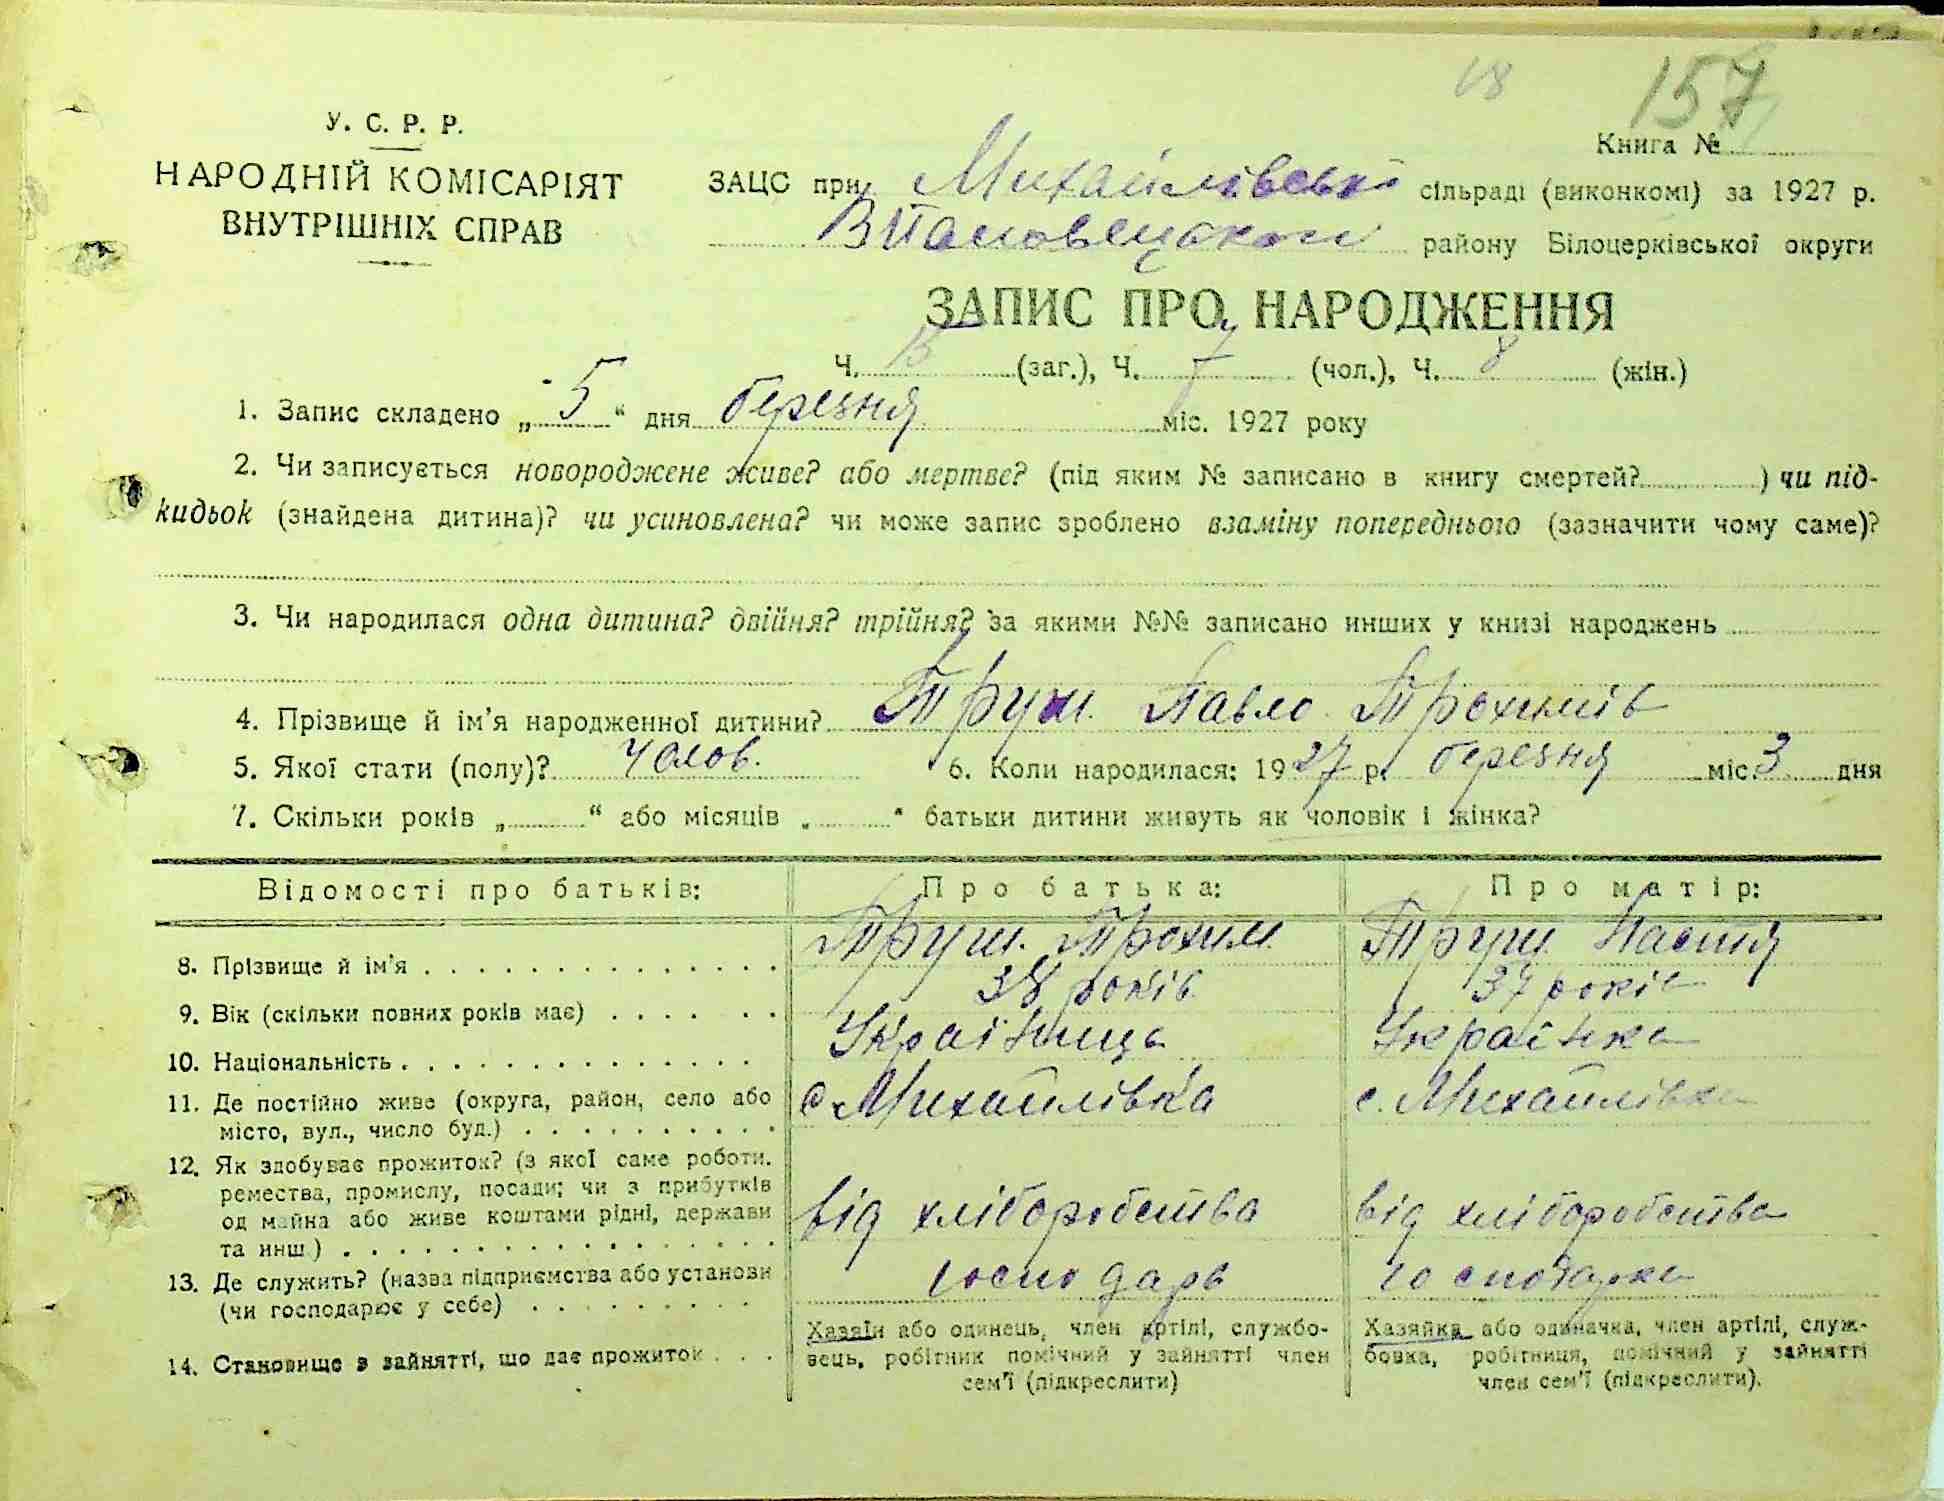 18 157
У. С. Р. Р.
Книга №
НАРОДНІЙ КОМІСАРІЯТ
ВНУТРІШНІХ СПРАВ
ЗАЦС при Михайлівській сільраді (виконкомі) за 1927 р.
району Білоцерківської округи
ЗАПИС ПРО НАРОДЖЕННЯ
Ч. 15 (заг.), Ч. 7 (чол.), Ч. 8 (жін.)
1. Запис складено „5“ дня березня міс. 1927 року
2. Чи записується новороджене живе? або мертве? (під яким № записано в книгу смертей? ) чи під-
кидьок (знайдена дитина)? чи усиновлена? чи може запис зроблено взаміну попереднього (зазначити чому саме)?
3. Чи народилася одна дитина? двійня? трійня? за якими №№ записано инших у книзі народжень
4. Прізвище й ім'я народженної дитини? Труш. Павло Трохимів
5. Якої стати (полу)? Чолов. 6. Коли народилася: 1927 р. березня міс. 3 дня
7. Скільки років „ “ або місяців „ “ батьки дитини живуть як чоловік і жінка?
Відомості про батьків: Про батька: Про матір:
8. Прізвище й ім'я Труш. Трохим Труш Настя
9. Вік (скільки повних років має) 38 років 37 років
10. Національність Українець Українка
11. Де постійно живе (округа, район, село або
місто, вул., число буд.) с. Михайлівка с. Михайлівка
12. Як здобуває прожиток? (з якої саме роботи.
ремества, промислу, посади; чи з прибутків
од майна або живе коштами рідні, держави
та инш.) від хліборобства від хліборобства
13. Де служить? (назва підприємства або установи
(чи господарює у себе) господарь господарка
14. Становище в зайнятті, що дає прожиток
Хазяїн або одинець, член артілі, службо-
вець, робітник помічний у зайнятті член
сем'ї (підкреслити)
Хазяйка або одиначка, член артілі, служ-
бовка, робітниця, помічний у зайнятті
член сем'ї (підкреслити).